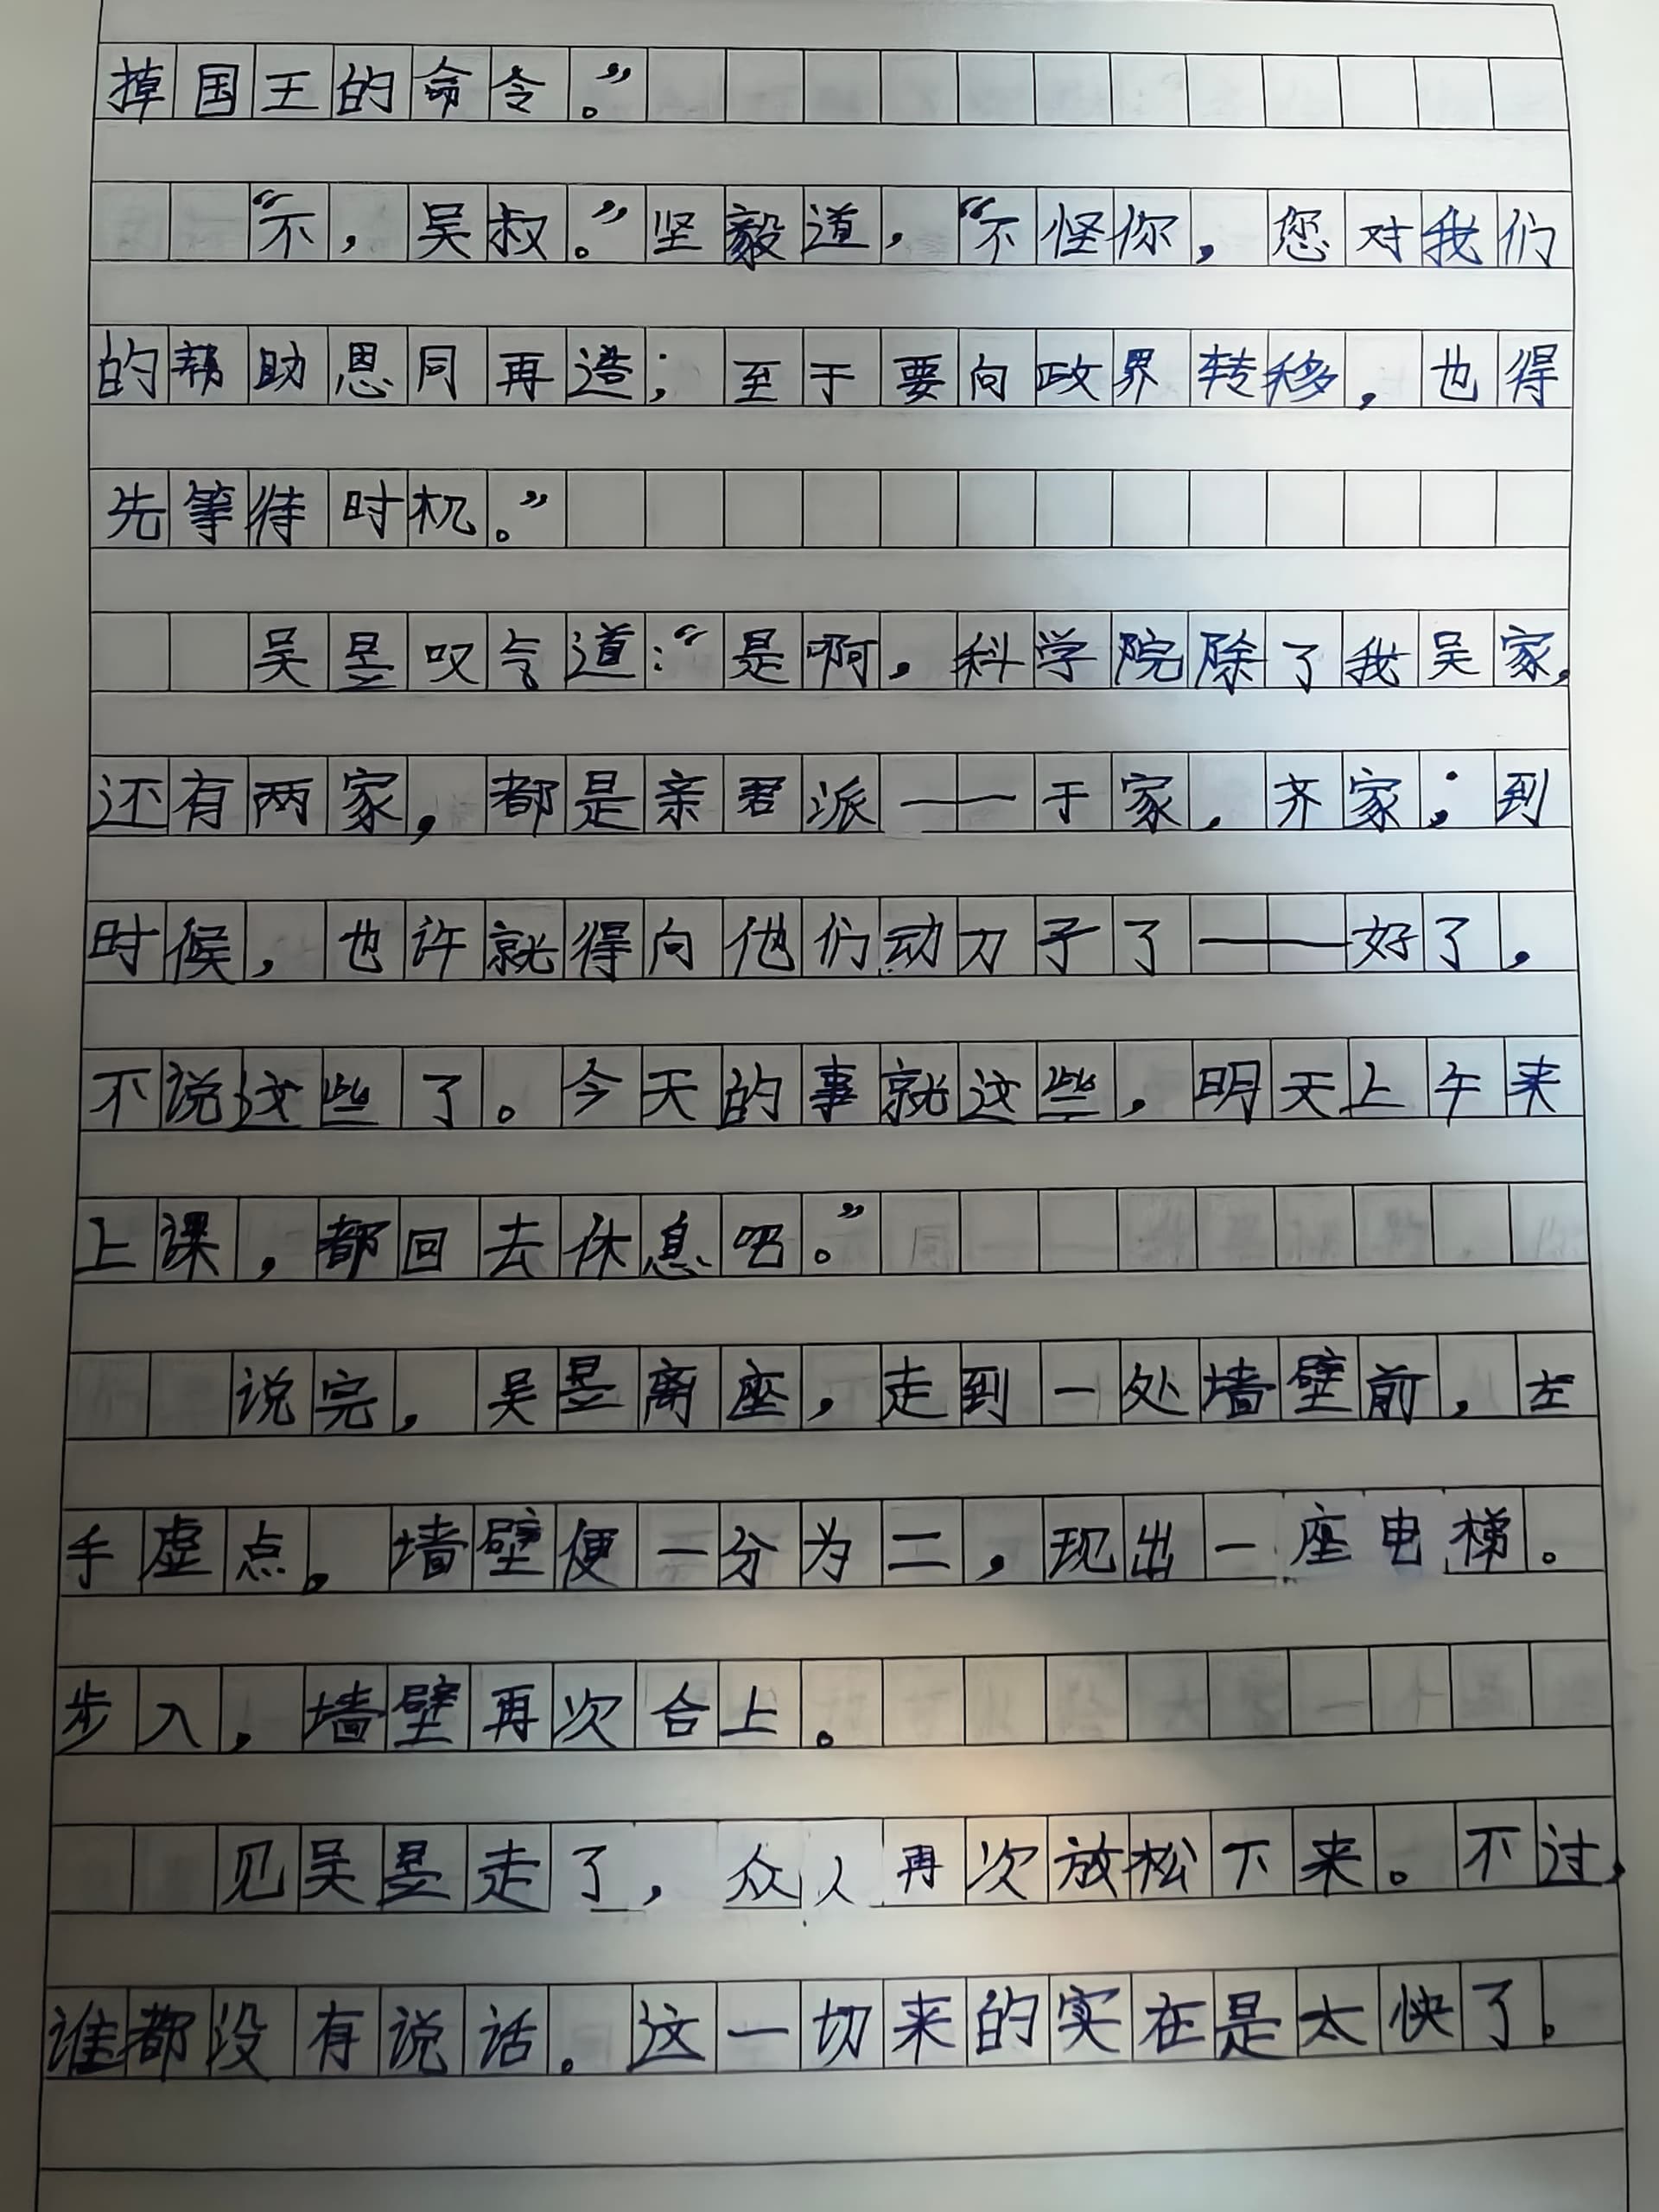 掉国王的命令。”
“不，吴叔。”坚毅道，“不怪你，您对我们
的帮助恩同再造；至于要向政界转移，也得
先等待时机。”
吴昱叹气道：“是啊，科学院除了我吴家，
还有两家，都是亲君派——于家，齐家；到
时候，也许就得向他们动刀子了——好了，
不说这些了。今天的事就这些，明天上午来
上课，都回去休息吧。”
说完，吴昱离座，走到一处墙壁前，左
手虚点。墙壁便一分为二，现出一座电梯。
步入，墙壁再次合上。
见吴昱走了，众人再次放松下来。不过，
谁都没有说话。这一切来的实在是太快了。